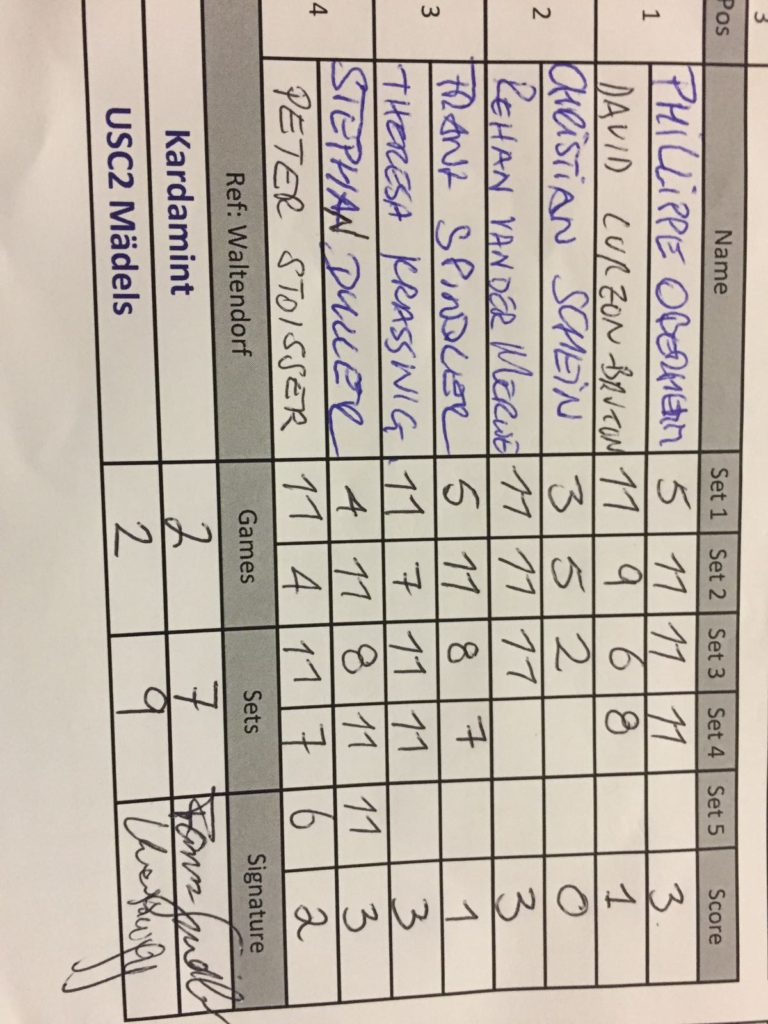 3
Pos Name Set 1 Set 2 Set 3 Set 4 Set 5 Score
1 PHILLIPPE 5 11 11 11 3
DAVID CURZON-BRUTON 11 9 6 8 1
2 CHRISTIAN SCHEIN 3 5 2 0
REHAN VANDER MERWE 11 11 11 3
3 FRANZ SPINDLER 5 11 8 7 1
THERESA KRASSNIG 11 7 11 11 3
4 STEPHAN DULLER 4 11 8 11 11 3
PETER STOISSER 11 4 11 7 6 2
Ref: Waltendorf Games Sets Signature
Kardamint 2 7
USC2 Mädels 2 9